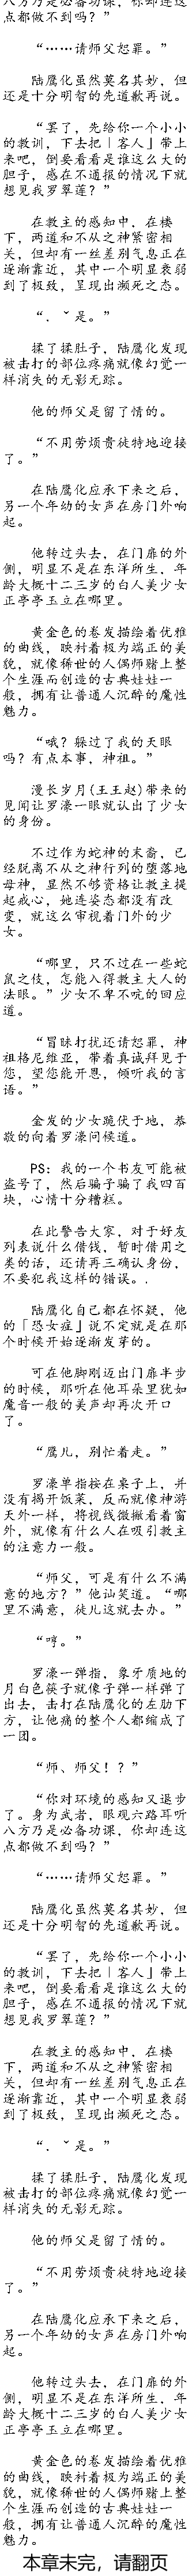 八方乃是必备功课，你却连这
点都做不到吗？”
“……请师父恕罪。”
陆鹰化虽然莫名其妙，但
还是十分明智的先道歉再说。
“罢了，先给你一个小小
的教训，下去把「客人」带上
来吧，倒要看看是谁这么大的
胆子，感在不通报的情况下就
想见我罗翠莲？”
在教主的感知中，在楼
下，两道和不从之神紧密相
关，但却有一丝差别气息正在
逐渐靠近，其中一个明显衰弱
到了极致，呈现出濒死之态。
“．ˇ是。”
揉了揉肚子，陆鹰化发现
被击打的部位疼痛就像幻觉一
样消失的无影无踪。
他的师父是留了情的。
“不用劳烦贵徒特地迎接
了。”
在陆鹰化应承下来之后，
另一个年幼的女声在房门外响
起。
他转过头去，在门扉的外
侧，明显不是在东洋所生．年
龄大概十二三岁的白人美少女
正亭亭玉立在哪里。
黄金色的卷发描绘着优雅
的曲线，映衬着极为端正的美
貌，就像稀世的人偶师赌上整
个生涯而创造的古典娃娃一
般，拥有让普通人沉醉的魔性
魅力。
“哦？躲过了我的天眼
吗？有点本事，神祖。”
漫长岁月(王王赵)带来的
见闻让罗濠一眼就认出了少女
的身份。
不过作为蛇神的末裔，已
经脱离不从之神行列的堕落地
母神，显然不够资格让教主提
起戒心，她连姿态都没有改
变，就这么审视着门外的少
女。
“哪里，只不过在一些蛇
鼠之伎，怎能入得教主大人的
法眼。”少女不卑不吭的回应
道。
“冒昧打扰还请恕罪，神
祖格尼维亚，带着真诚拜见于
您，望您能开恩，倾听我的言
语。”
金发的少女跪伏于地，恭
敬的向着罗濠问候道。
PS：我的一个书友可能被
盗号了，然后骗子骗了我四百
块，心情十分糟糕。
在此警告大家，对于好友
列表说什么借钱，暂时借用之
类的话，还请再三确认身份，
不要犯我这样的错误。．
陆鹰化自己都在怀疑，他
的「恐女症」说不定就是在那
个时候开始逐渐发芽的。
可在他脚刚迈出门扉半步
的时候，那听在他耳朵里犹如
魔音一般的美声却再次开口
了。
“鹰儿，别忙着走。”
罗濠单指按在桌子上，并
没有揭开饭菜，反而就像神游
天外一样，将视线微撇看着窗
外，就像有什么人在吸引教主
的注意力一般。
“师父，可是有什么不满
意的地方？”他讪笑道。“哪
里不满意，徒儿这就去办。”
“哼。”
罗濠一弹指，象牙质地的
月白色筷子就像子弹一样弹了
出去，击打在陆鹰化的左肋下
方，让他痛的整个人都缩成了
一团。
“师、师父！？”
“你对环境的感知又退步
了。身为武者，眼观六路耳听
八方乃是必备功课，你却连这
点都做不到吗？”
“……请师父恕罪。”
陆鹰化虽然莫名其妙，但
还是十分明智的先道歉再说。
“罢了，先给你一个小小
的教训，下去把「客人」带上
来吧，倒要看看是谁这么大的
胆子，感在不通报的情况下就
想见我罗翠莲？”
在教主的感知中，在楼
下，两道和不从之神紧密相
关，但却有一丝差别气息正在
逐渐靠近，其中一个明显衰弱
到了极致，呈现出濒死之态。
“．ˇ是。”
揉了揉肚子，陆鹰化发现
被击打的部位疼痛就像幻觉一
样消失的无影无踪。
他的师父是留了情的。
“不用劳烦贵徒特地迎接
了。”
在陆鹰化应承下来之后，
另一个年幼的女声在房门外响
起。
他转过头去，在门扉的外
侧，明显不是在东洋所生．年
龄大概十二三岁的白人美少女
正亭亭玉立在哪里。
黄金色的卷发描绘着优雅
的曲线，映衬着极为端正的美
貌，就像稀世的人偶师赌上整
个生涯而创造的古典娃娃一
般，拥有让普通人沉醉的魔性
魅力。
本章未完，请翻页